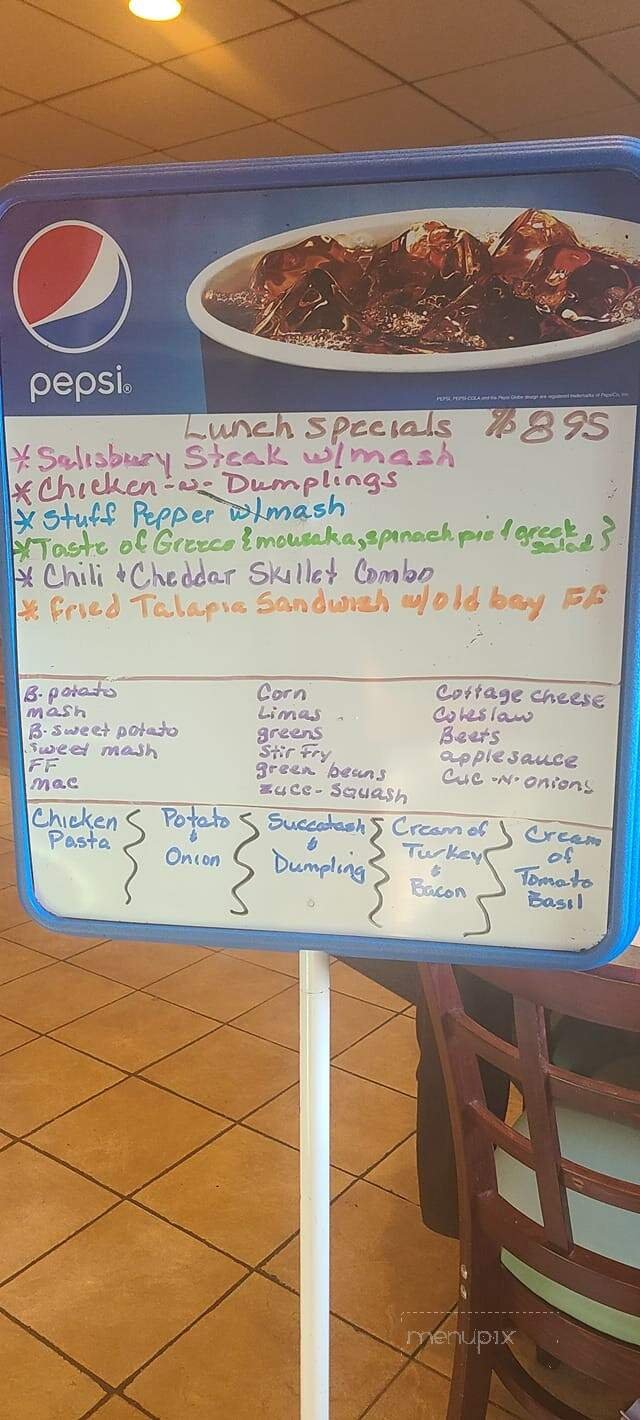 pepsi®
PEPSI, PEPSI-COLA and the Pepsi Globe design are registered trademarks of PepsiCo, Inc.
Lunch specials $8.95
* Salisbury Steak w/mash
* Chicken -n- Dumplings
* Stuff Pepper w/mash
* Taste of Greece {mousaka, spinach pie & greek salad}
* Chili & Cheddar Skillet Combo
* fried Talapia Sandwich w/old bay FF
B. potato
mash
B. sweet potato
sweet mash
FF
mac
Corn
Limas
greens
Stir Fry
green beans
zucc- Squash
Cottage cheese
Coleslaw
Beets
applesauce
Cuc -N- onions
Chicken
Pasta
Potato
&
Onion
Succotash
&
Dumpling
Cream of
Turkey
&
Bacon
Cream
of
Tomato
Basil
menupix